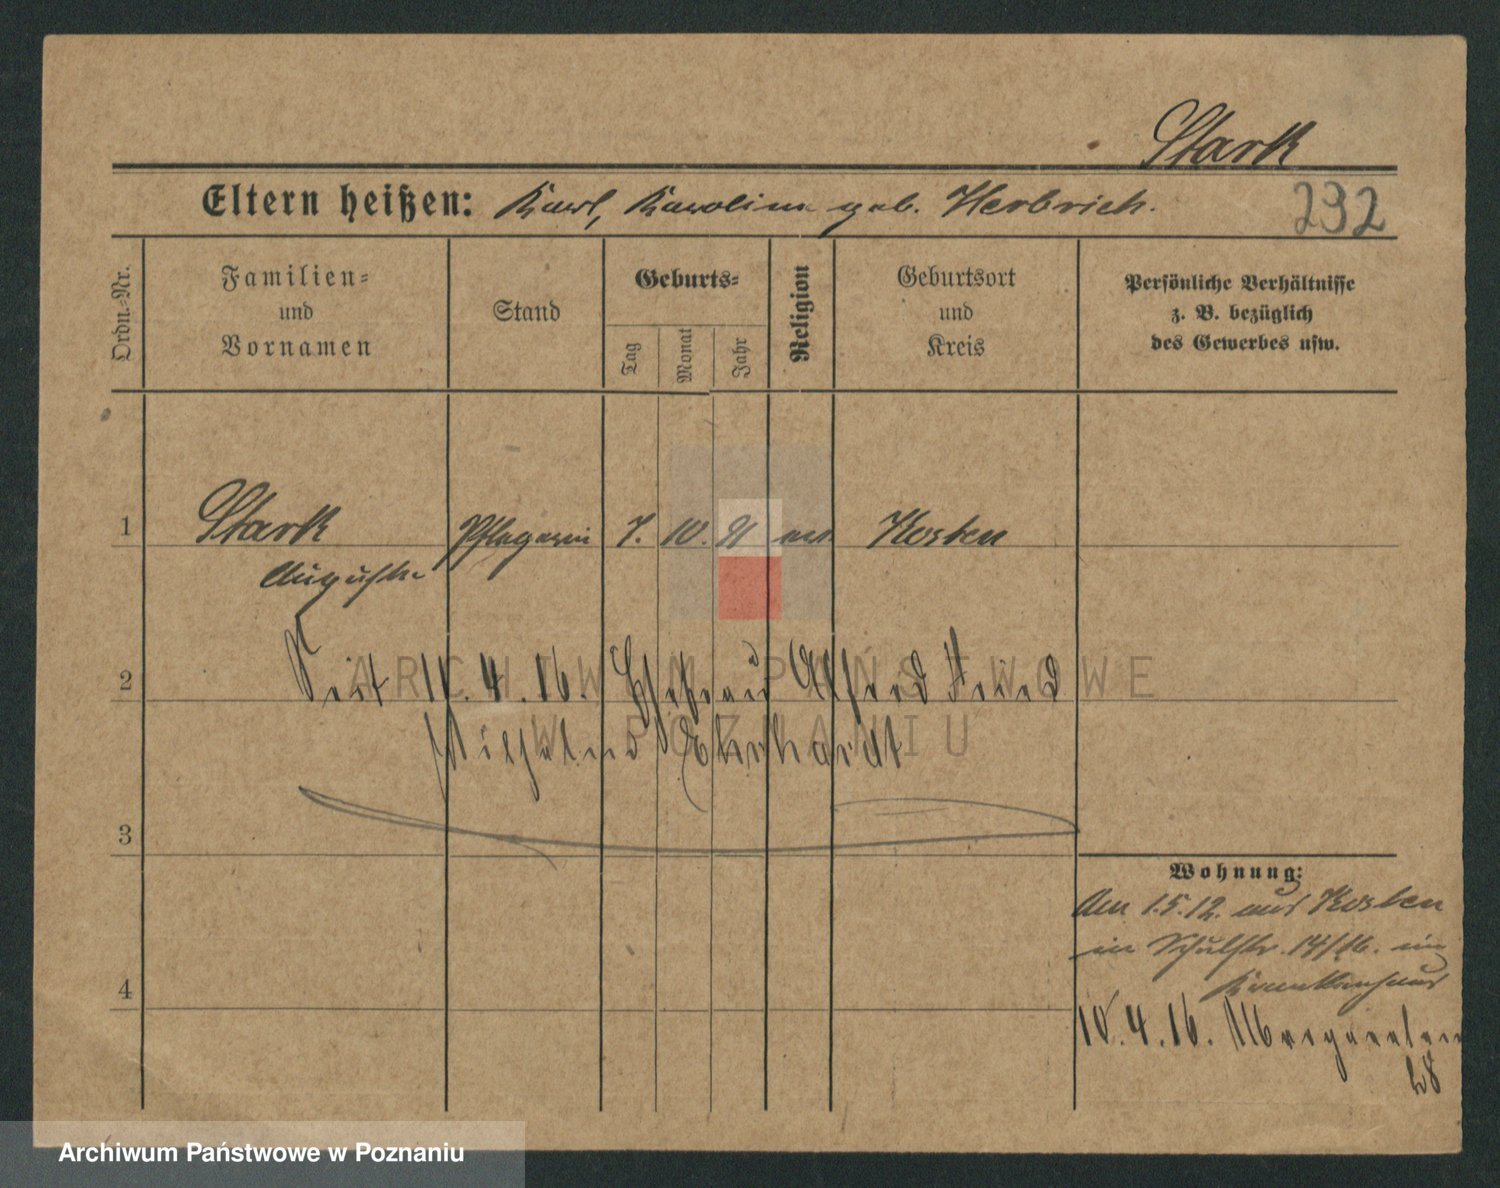 Stark
Eltern heißen: Karl, Karoline geb. Herbrich.
232
Ordn.-Nr.
Familien-
und
Vornamen
Stand
Geburts-
Tag
Monat
Jahr
Religion
Geburtsort
und
Kreis
Persönliche Verhältnisse
z. B. bezüglich
des Gewerbes usw.
1 Stark Pflegerin 7. 10. 91 ev. Kosten
Auguste
2 Seit 10. 4. 16. Ehefrau Alfred
Wilhelm Ehrhardt
ARCHIWUM PAŃSTWOWE
W POZNANIU
3
Wohnung:
Am 1.5.12. aus Kosten
in Schulstr. 14/16. im
Krankenhaus
4
10.4.16.
28
Archiwum Państwowe w Poznaniu